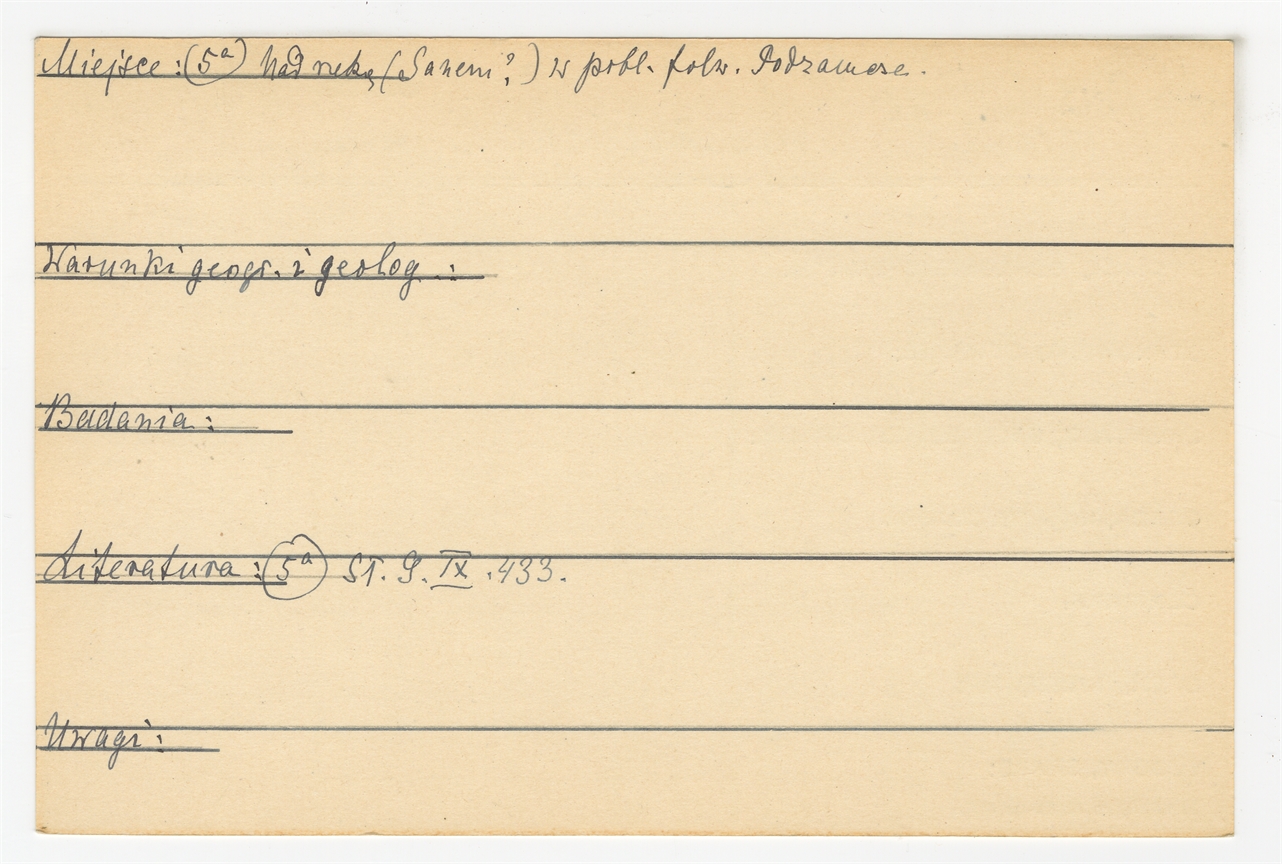 Miejsce: (5a) Nad rzeką (Sanem?) w pobl. folw. Podzamcze.
Warunki geogr. i geolog.:
Badania:
Literatura: (5a) Sł. G. IX .433.
Uwagi: